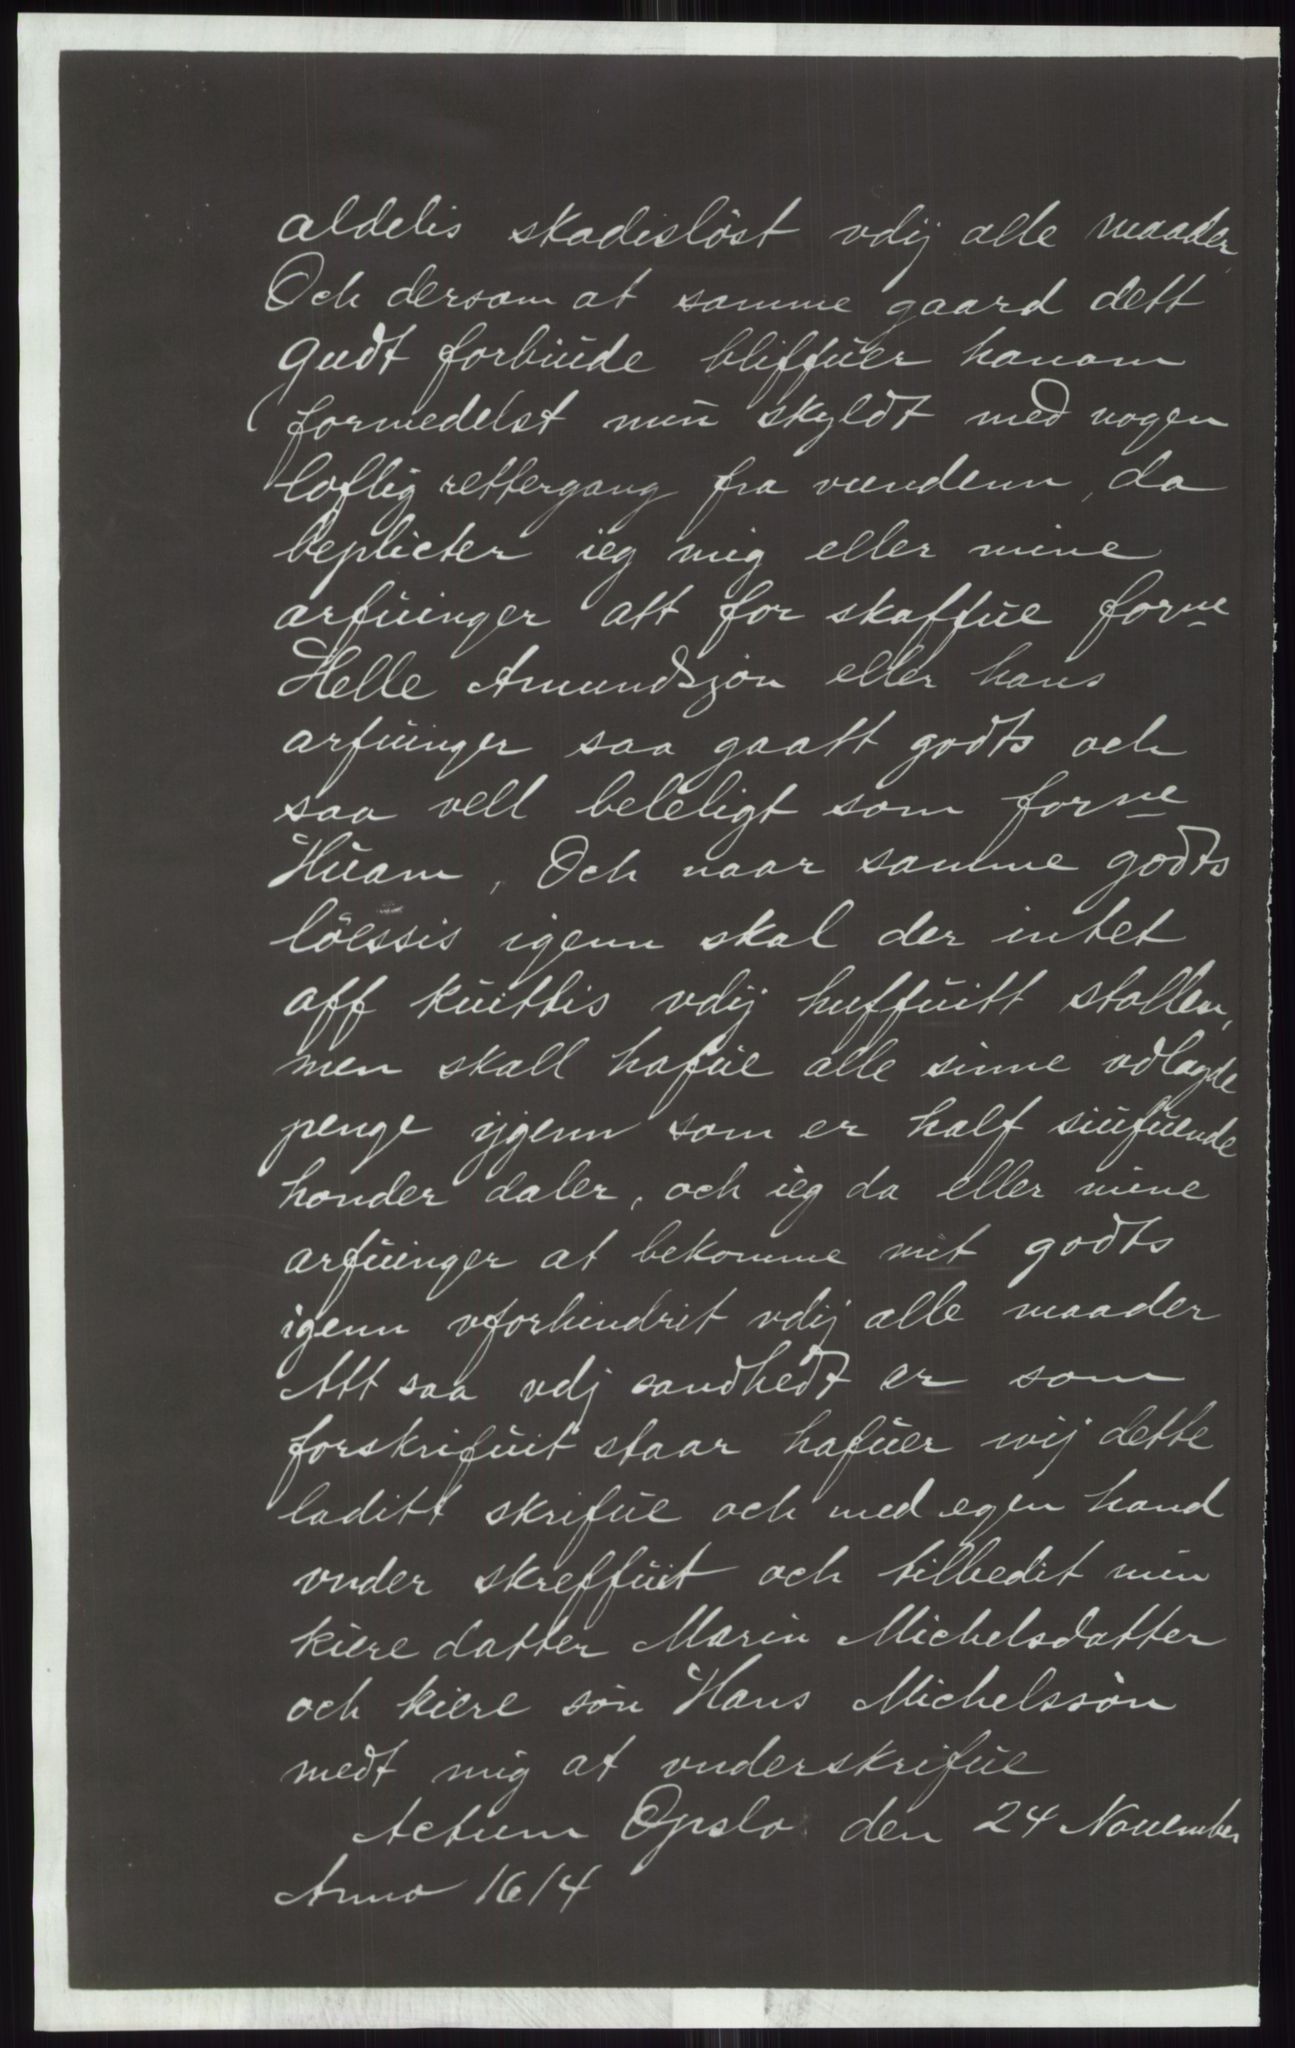 aldelis skadisløst vdij alle maader,
Och dersom at samme gaard dett
gudt forbiude bliffuer hanom
formedelst min skyldt med nogen
loflig rettergang fra vundenn, da
beplicter ieg mig eller mine
arfuinger att for skaffue forne
Helle Amundszøn eller hans
arfuinger saa gaatt godts och
saa vell beleligt som forne
Huam, Och naar samme godts
löessis igenn skal der intet
aff kuittis vdij huffuitt stollen,
men skall hafue alle sinne vdlagde
penge ijgenn som er half siufuende
honder daler, och ieg da eller mine
arfuinger at bekomme mit godts
igenn vforhindrit vdij alle maader
Att saa vdj sandhedt er som
forskrifuit staar hafuer wij dette
laditt skrifue och med egen hand
vnder skreffuit och tilbedit min
kiere datter Marin Michelsdatter
och kiere søn Hans Michelssøn
medt mig at vnderskrifue
Actum Opslo den 24 Nouember
Anno 1614